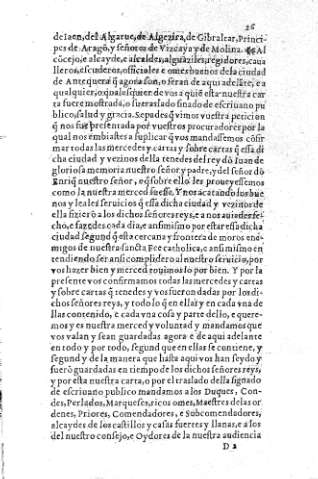 26
de Iaen, del Algarue, de Algezira, de Gibraltar, Princi-
pes de Aragõ, y señores de Vizcaya y de Molina. Al
cõcejo, e alcayde, e alcaldes, alguaziles, regidores, caua
lleros, escuderos, officiales e omes buenos dela ciudad
de Antequera q̃ agora son, o seran de aqui adelãte, e a
qualquier, o qualesquier de vos a quiẽ esta nuestra car
ta fuere mostrada, o su traslado sinado de escriuano pu
blico, salud y gracia. Sepades q̃ vimos vuestra peticion
q̃ nos fue presentada por vuestros procuradores por la
qual nos embiastes a suplicar q̃ vos mandassemos cõfir
mar todas las mercedes y cartas y sobre cartas q̃ essa di
cha ciudad y vezinos della tenedes del rey dõ Iuan de
gloriosa memoria nuestro señor y padre, y del señor dõ
Enriq̃ nuestro señor, e q̃ sobre ello les proueyessemos
como la nuestra merced fuesse. Y nos acatando los bue
nos y leales seruicios q̃ essa dicha ciudad y vezinos de
ella fizierõ a los dichos señores reyes, e a nos auiades fe-
cho, e fazedes cada dia, e ansimismo por estar essa dicha
ciudad segund q̃ esta cercana y frontera de moros ene-
migos de nuestra sancta Fee catholica, e ansimismo en
tendiendo ser ansi complidero al nuestro seruicio, por
vos hazer bien y merced touimos lo por bien. Y por la
presente vos confirmamos todas las mercedes y cartas
y sobre cartas q̃ tenedes y vos fueron dadas por los di-
chos señores reys, y todo lo q̃ en ellas y en cada vna de
llas contenido, e cada vna cosa y parte dello, e quere-
mos y es nuestra merced y voluntad y mandamos que
vos valan y sean guardadas agora e de aqui adelante
en todo y por todo, segund que en ellas se contiene, y
segund y de la manera que hasta aqui vos han seydo y
fuerõ guardadas en tiempo de los dichos señores reys,
y por esta nuestra carta, o por el traslado della signado
de escriuano publico mandamos a los Duques, Con-
des, Perlados, Marqueses, ricos omes, Maestres delas or
denes, Priores, Comendadores, e Subcomendadores,
alcaydes de los castillos y casas fuertes y llanas, e a los
del nuestro consejo, e Oydores de la nuestra audiencia
D 2